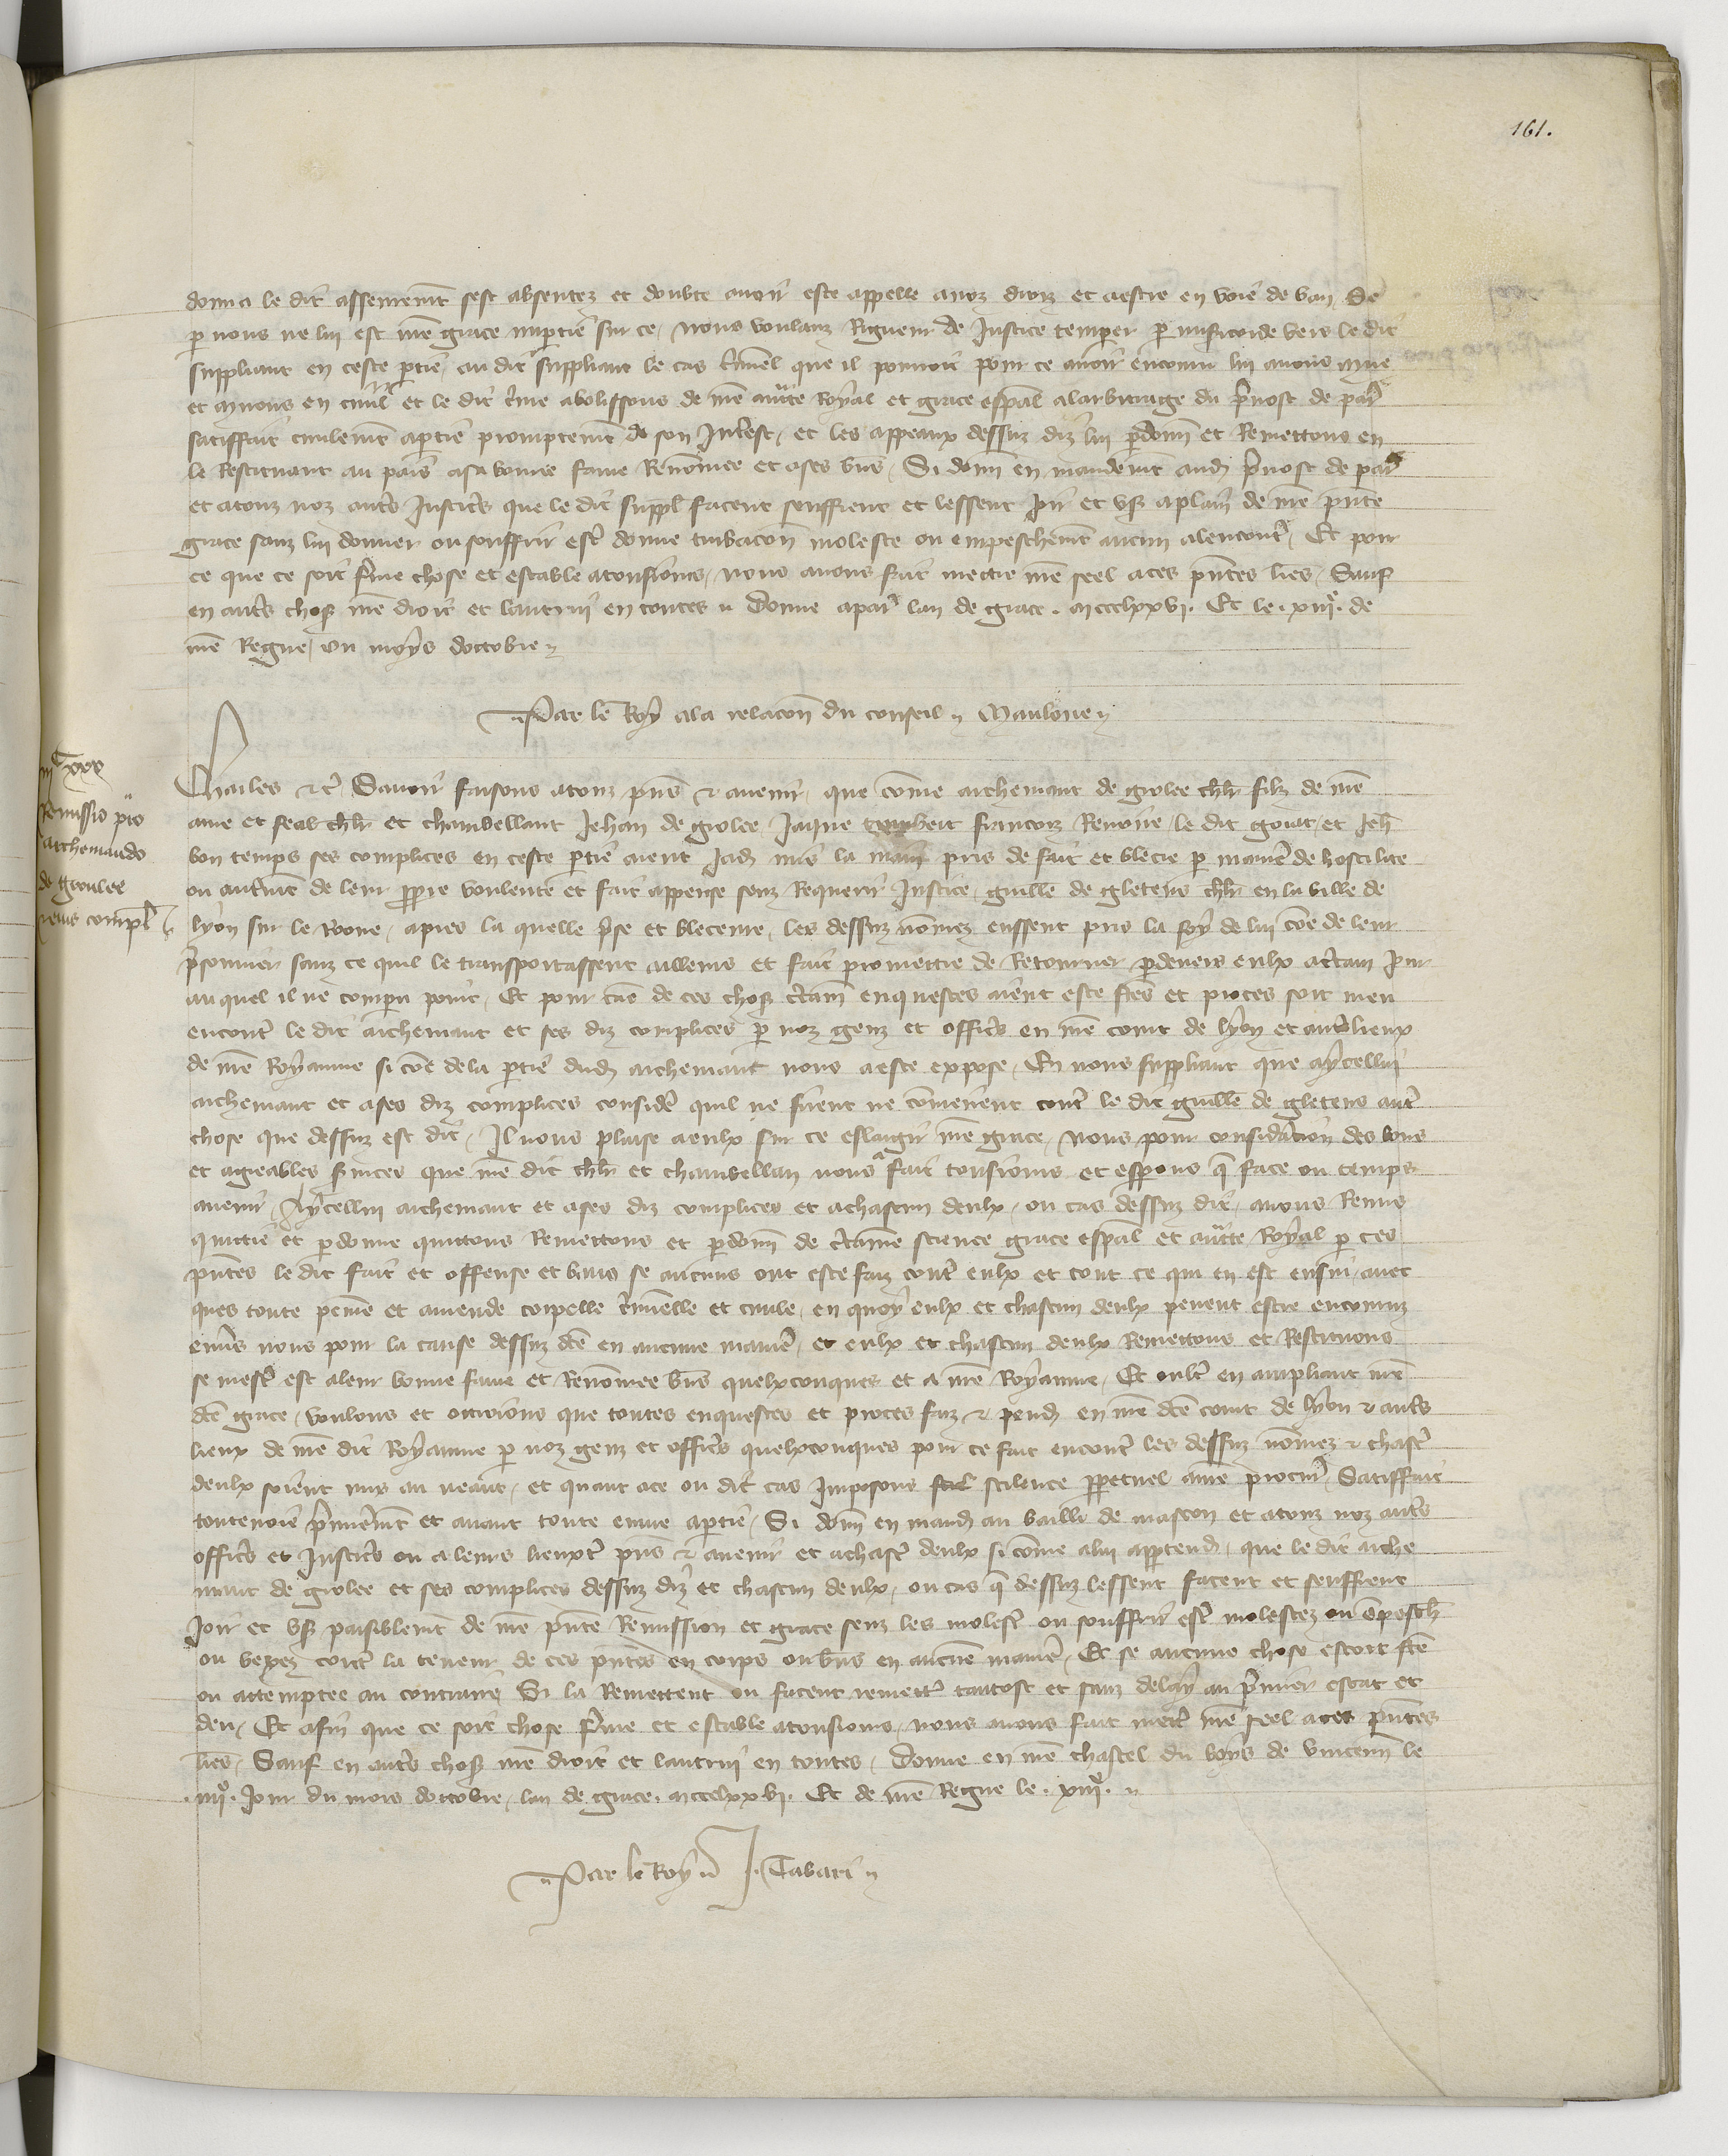 161.
donna le dit assentemt sest absentez et doubte avoir este appelle a noz droiz et a estre en voie de ban Se
p nous ne lui est nre grace impartie sur ce, Nous voulanz Rigueur de Justice temper p misicorde vers le dit
suppliant en ceste ptie, au dit suppliant le cas criminel que il pourroit pour ce avoir encouru lui avons mue
et muons en civil et le dit crime abolissons de nre aucte Royal et grace espal a larbitrage du prevost de par
satiffait civilemt a partie promptemt de son Interest, et les appeaux dessuz diz lui pdonn et Remettons en
le Restituant au pais a sa bonne fame Renomee et a ses biens, Si donn en mandemt aud prevost de par
et a touz noz autres Justiciers que le dit suppl facent seuffrent et lessent Joir et user a plain de nre pnte
grace sanz lui donner ou souffrir estre donne turbacon moleste ou empeschemt aucun alencontre, Et pour
ce que ce soit ferme chose et estable a tousiours, nous avons fait mettre nre seel a ces pntes lres, Sauf
en autres choses nre droit et lautrui en toutes Donne a paris lan de grace mccclxxvi. Et le xiije de
nre Regne, ou moys doctobre
Par le Roy a la relacon du conseil Maulone
iijc xxx
Remissio pro
archemando
de grolee
et eius compl
Charles etc Savoir faisons a touz pns & avenir, que come archemant de grolee chlr filz de nre
ame et feal chlr et chambellant Jehan de grolee Jaque francoiz Renone, le dit gouat, et Jeh
bon temps ses complices en ceste partie aient Jadiz mis la main pris de fait et blecie p maniere de hostilite
ou autremt de leur propre voulente et fait appense senz Requerir Justice, guille de gletens chlr en la ville de
lyon sur le Rone, apres la quelle prise et bleceure, les dessuz nommez eussent pris la foy de lui coe de leur
prisonnier sanz ce quil le transportassent ailleurs et fait promettre de Retourner pdevers eulx a certain Jour
au quel il ne compru point, Et pour cae de ces choses certain enquestes aient este ftes et proces soit meu
encontre le dit archemant et ses diz complices p noz genz et officiers en nre court de lyon et autres lieux
de nre Royaume si coe de la partie dud archemant nous a este expose, En nous suppliant que aycellui
archemant et a ses diz complices considere quil ne firent ne comencent contre le dit guille de gletens autre
chose que dessuz est dit, Il nous plaise a eulx sur ce eslargir nre grace, Nous pour consideracion des bons
et agreables services que nre dit chlr et chambellan nous a fait tousiours et esperons q face ou temps
avenir, Aycellui archemant et a ses diz complices et a chascun deulx, ou cas dessuz dit, avons Remis
quittie et pdonne quittons Remettons et pdonn de certaine science grace espal et aucte Royal p ces
pntes le dit fait et offense et bans se aucuns ont este faiz contre eulx et tout ce qui en est ensui, avec
ques toute peine et amende corpelle criminelle et civile, en quoy eulx et chascun deulx pevent estre encouruz
envers nous pour la cause dessuz dte en aucune maniere, et eulx et chascun deulx Remettons et Restituons
se mest est a leur bonne fame et Renomee biens quelxconques et a nre Royaume, Et oultre en ampliant nre
dte grace, voulons et ottroions que toutes enquestes et proces faiz & pend en nre dte court de lyon & autres
lieux de nre dit Royaume p noz genz et officiers quelxconques pour ce fait encontre les dessuz nommez & chascun
deulx soient mis au neant, et quant a ce ou dit cas Imposons scilence perpetuel a nre procur, Satiffait
toutevoie premieremt et avant toute euvre a partie, Si donn en mand au bailli de mascon et a touz noz autres
officiers et Justiciers ou a leurs lieuxten pns & avenir et a chascun deulx si come a lui appartendra, que le dit arche
mant de grolee et ses complices dessuz diz et chascun deulx, ou cas q dessuz lessent facent et seuffrent
Joir et user paisiblemt de nre pnte Remission et grace senz les molester ou souffrir estre molestez ou empesch
ou vexez contre la teneur de ces pntes en corps ou biens en aucune maniere, Et se aucune chose estoit fte
ou attemptee au contraire Si la Remettent ou facent remettre tantost et sanz delay au premier estat et
deu, Et afin que ce soit chose ferme et estable a tousiours, nous avons fait mettre nre seel a ces pntes
lres, Sauf en autres choses nre droit et lautrui en toutes, Donne en nre chastel du boys de vincenn le
iiije. Jour du mois doctobre, lan de grace. mccclxxvi. Et de nre Regne le. xiije.
Par le Roy J. Tabari